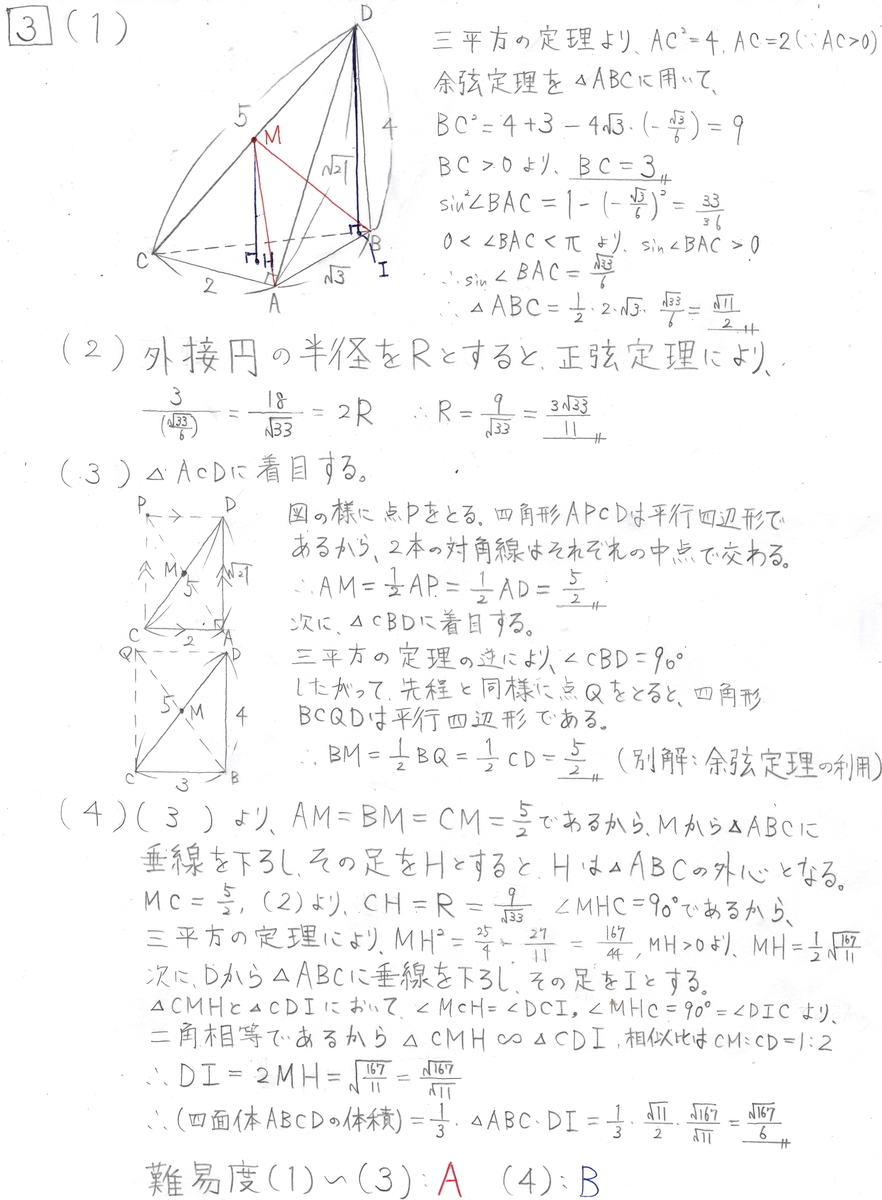 3 (1)
D
5
M
4
√21
C
H
B
I
2
√3
A
三平方の定理より、AC²=4, AC=2(∵AC>0)
余弦定理を△ABCに用いて、
BC²=4+3-4√3・(-√3/6)=9
BC>0より、BC=3
sin²∠BAC=1-(-√3/6)²=33/36
0<∠BAC<πより、sin∠BAC>0
∴sin∠BAC=√33/6
∴△ABC=1/2・2・√3・√33/6=√11/2
(2) 外接円の半径をRとすると、正弦定理により、
3/(√33/6)=18/√33=2R ∴R=9/√33=3√33/11
(3) △ACDに着目する。
P
D
M
5
√21
C
2
A
図の様に点Pをとる。四角形APCDは平行四辺形で
あるから、2本の対角線はそれぞれの中点で交わる。
∴AM=1/2AP=1/2AD=5/2
次に、△CBDに着目する。
Q
D
5
M
4
C
3
B
三平方の定理の逆により、∠CBD=90°
したがって、先程と同様に点Qをとると、四角形
BCQDは平行四辺形である。
∴BM=1/2BQ=1/2CD=5/2 (別解:余弦定理の利用)
(4)(3)より、AM=BM=CM=5/2であるから、Mから△ABCに
垂線を下ろし、その足をHとすると、Hは△ABCの外心となる。
MC=5/2, (2)より、CH=R=9/√33 ∠MHC=90°であるから、
三平方の定理により、MH²=25/4-27/11=167/44, MH>0より、MH=1/2√167/11
次に、Dから△ABCに垂線を下ろし、その足をIとする。
△CMHと△CDIにおいて、∠MCH=∠DCI, ∠MHC=90°=∠DICより、
二角相等であるから△CMH∽△CDI, 相似比はCM:CD=1:2
∴DI=2MH=√167/11=√167/√11
∴(四面体ABCDの体積)=1/3・△ABC・DI=1/3・√11/2・√167/√11=√167/6
難易度(1)~(3):A (4):B